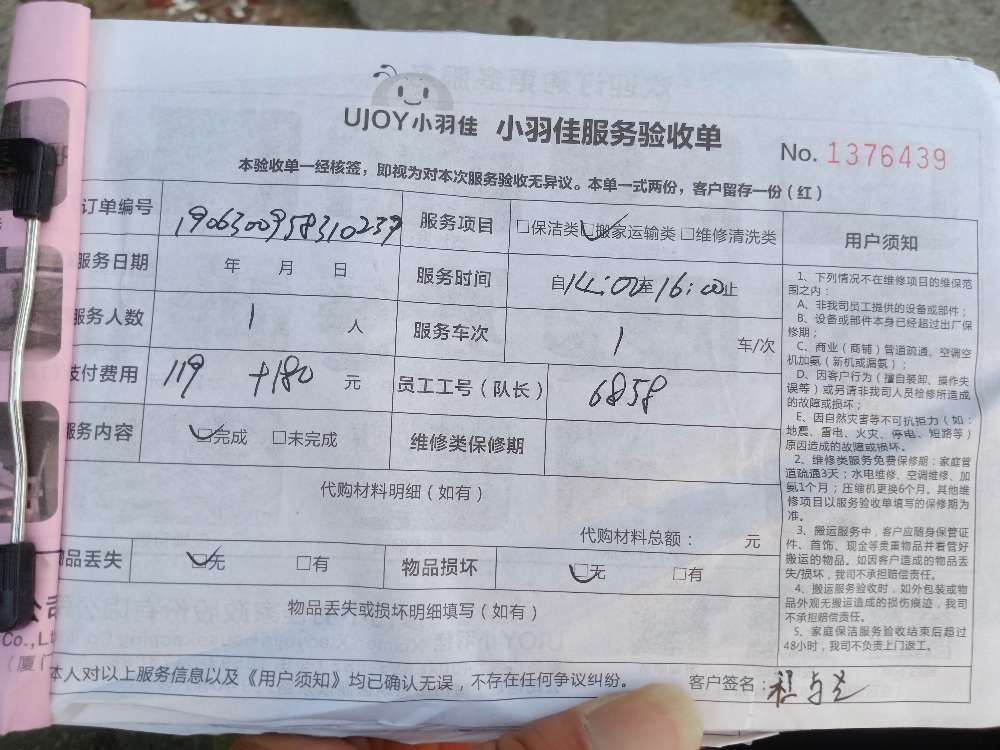 UJOY小羽佳 小羽佳服务验收单
No. 1376439
本验收单一经核签，即视为对本次服务验收无异议。本单一式两份，客户留存一份（红）
订单编号 1906300958310239 服务项目 □保洁类 □搬家运输类 □维修清洗类
服务日期 年 月 日 服务时间 自14:00至16:00止
服务人数 1 人 服务车次 1 车/次
支付费用 119 +180 元 员工工号（队长） 6858
服务内容 □完成 □未完成 维修类保修期
代购材料明细（如有）
代购材料总额： 元
物品丢失 □无 □有 物品损坏 □无 □有
物品丢失或损坏明细填写（如有）
本人对以上服务信息以及《用户须知》均已确认无误，不存在任何争议纠纷。 客户签名：
用户须知
1、下列情况不在维修项目的维保范
围之内：
A、非我司员工提供的设备或部件；
B、设备或部件本身已经超过出厂保
修期；
C、商业（商铺）管道疏通、空调空
机加氨（新机或漏氨）；
D、因客户行为（擅自装卸、操作失
误等）或另请非我司人员检修所造成
的故障或损坏；
E、因自然灾害等不可抗拒力（如：
地震、雷电、火灾、停电、短路等）
原因造成的故障或损坏。
2、维修类服务免费保修期：家庭管
道疏通3天；水电维修、空调维修、加
氨1个月；压缩机更换6个月。其他维
修项目以服务验收单填写的保修期为
准。
3、搬运服务中，客户应随身保管证
件、首饰、现金等贵重物品并看管好
搬运的物品。如因客户造成的物品丢
失/损坏，我司不承担赔偿责任。
4、搬运服务验收时，如外包装或物
品外观无搬运造成的损伤痕迹，我司
不承担赔偿责任。
5、家庭保洁服务验收结束后超过
48小时，我司不负责上门返工。
公司
Co.,Lt
（厦门